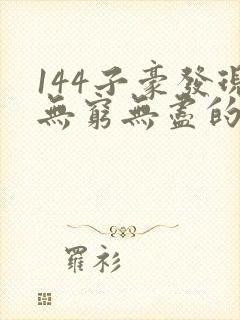 144子豪發現
無窮無盡的
羅衫